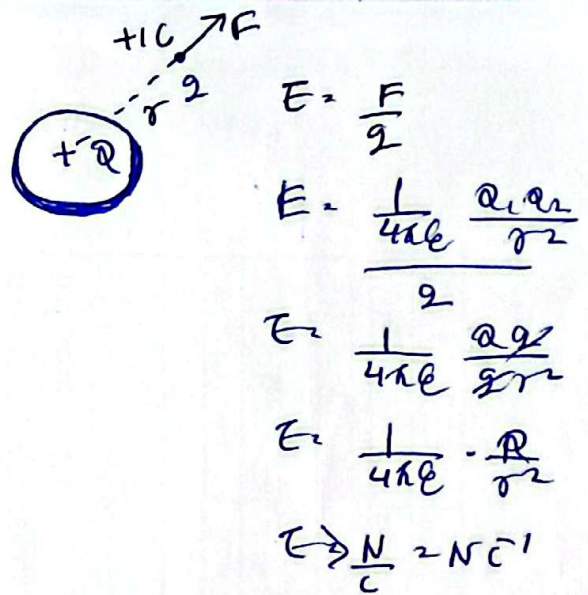 +1C F
r q
+Q
E = F/q
E = 1/4πε Q₁Q₂/r² / q
E = 1/4πε Qq/qr²
E = 1/4πε · Q/r²
E → N/C = NC⁻¹